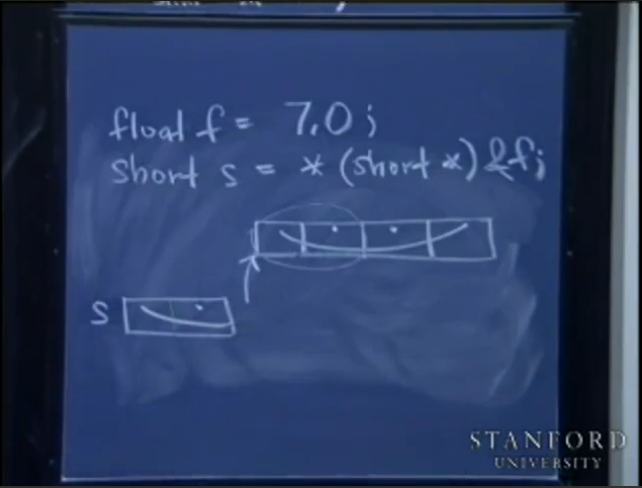 float f = 7.0;
short s = *(short *) &f;
S
STANFORD
UNIVERSITY